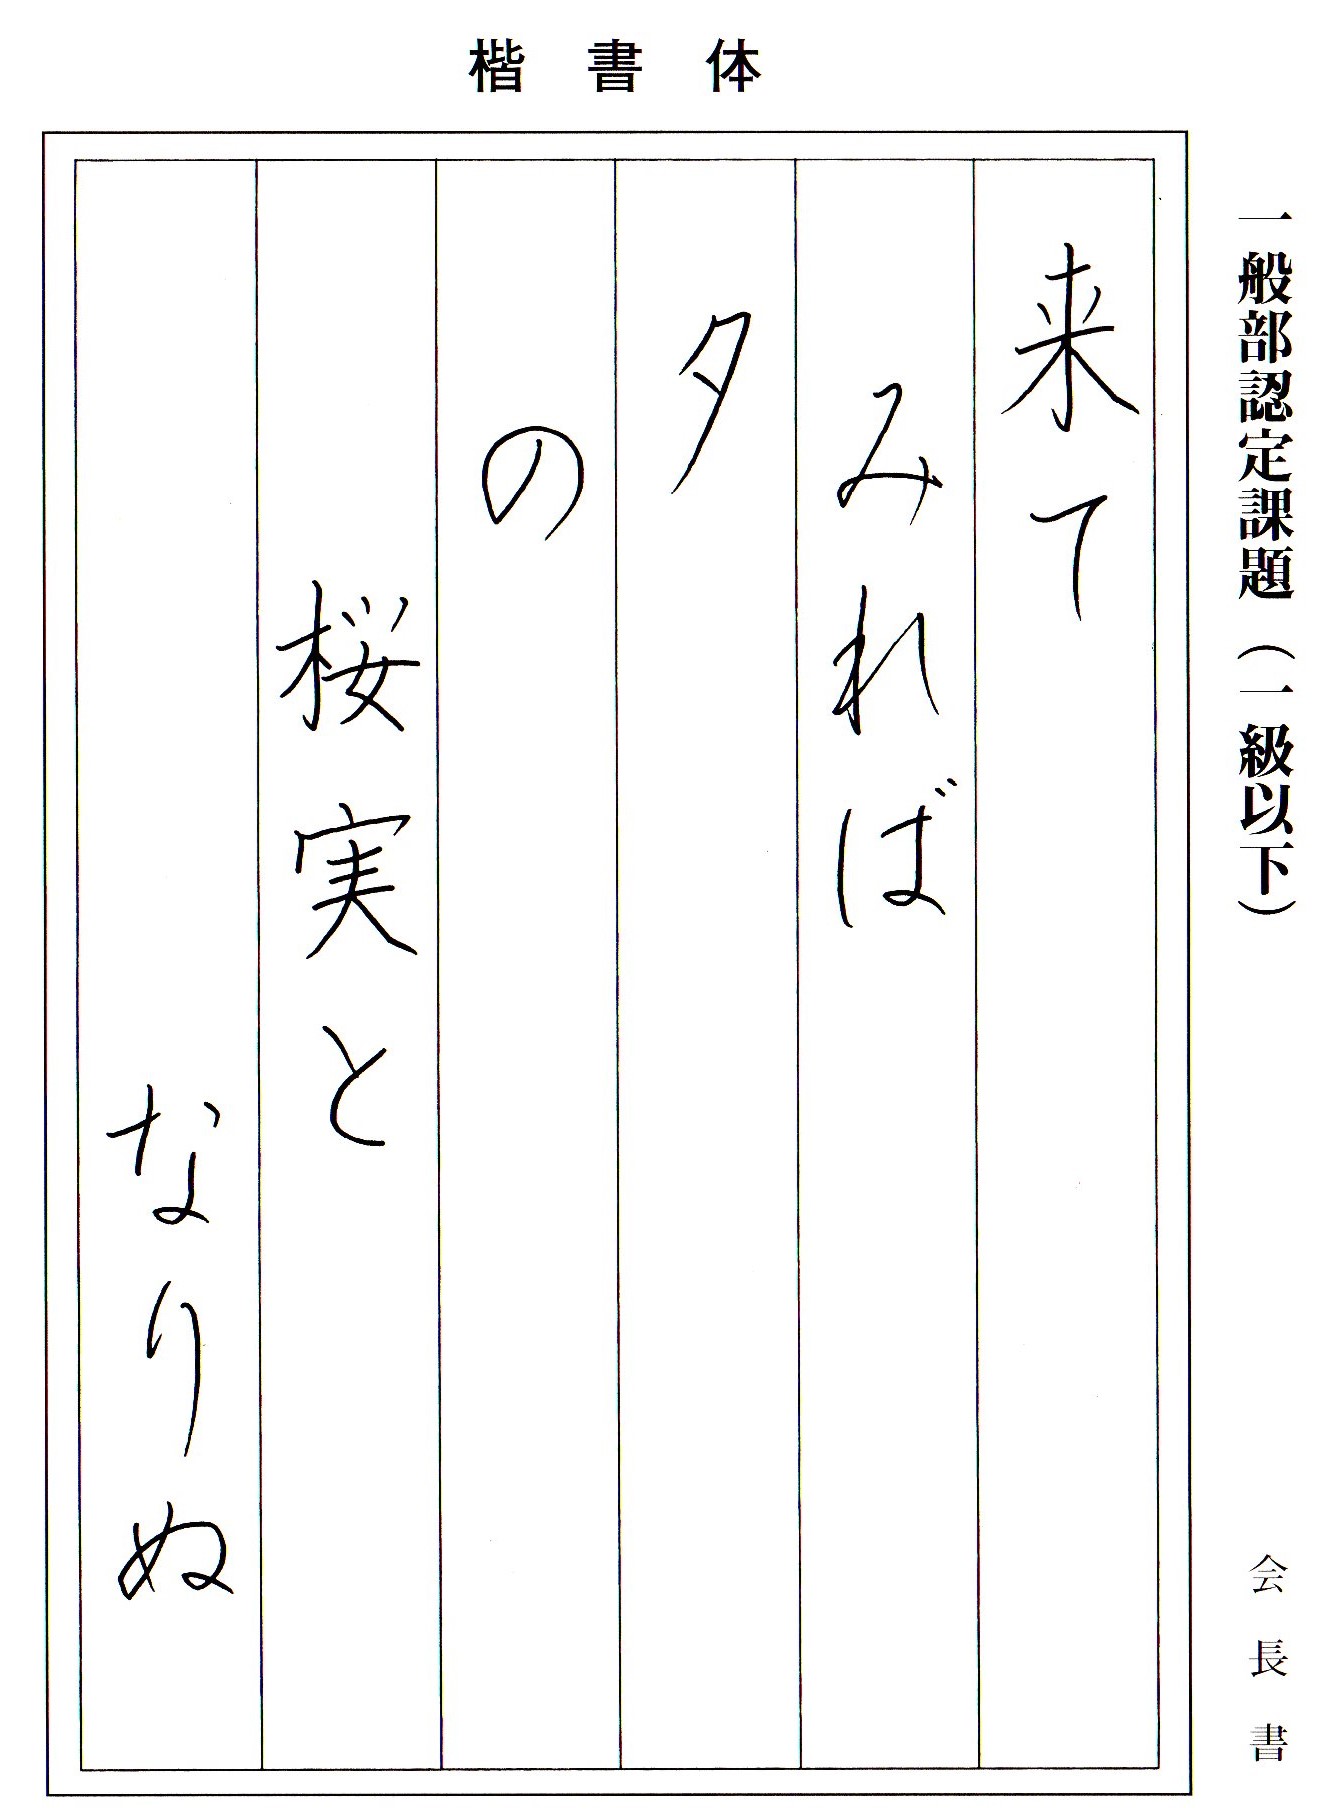 楷書体
一般部認定課題（一級以下）
会長書
来て
みれば
夕
の
桜実と
なりぬ